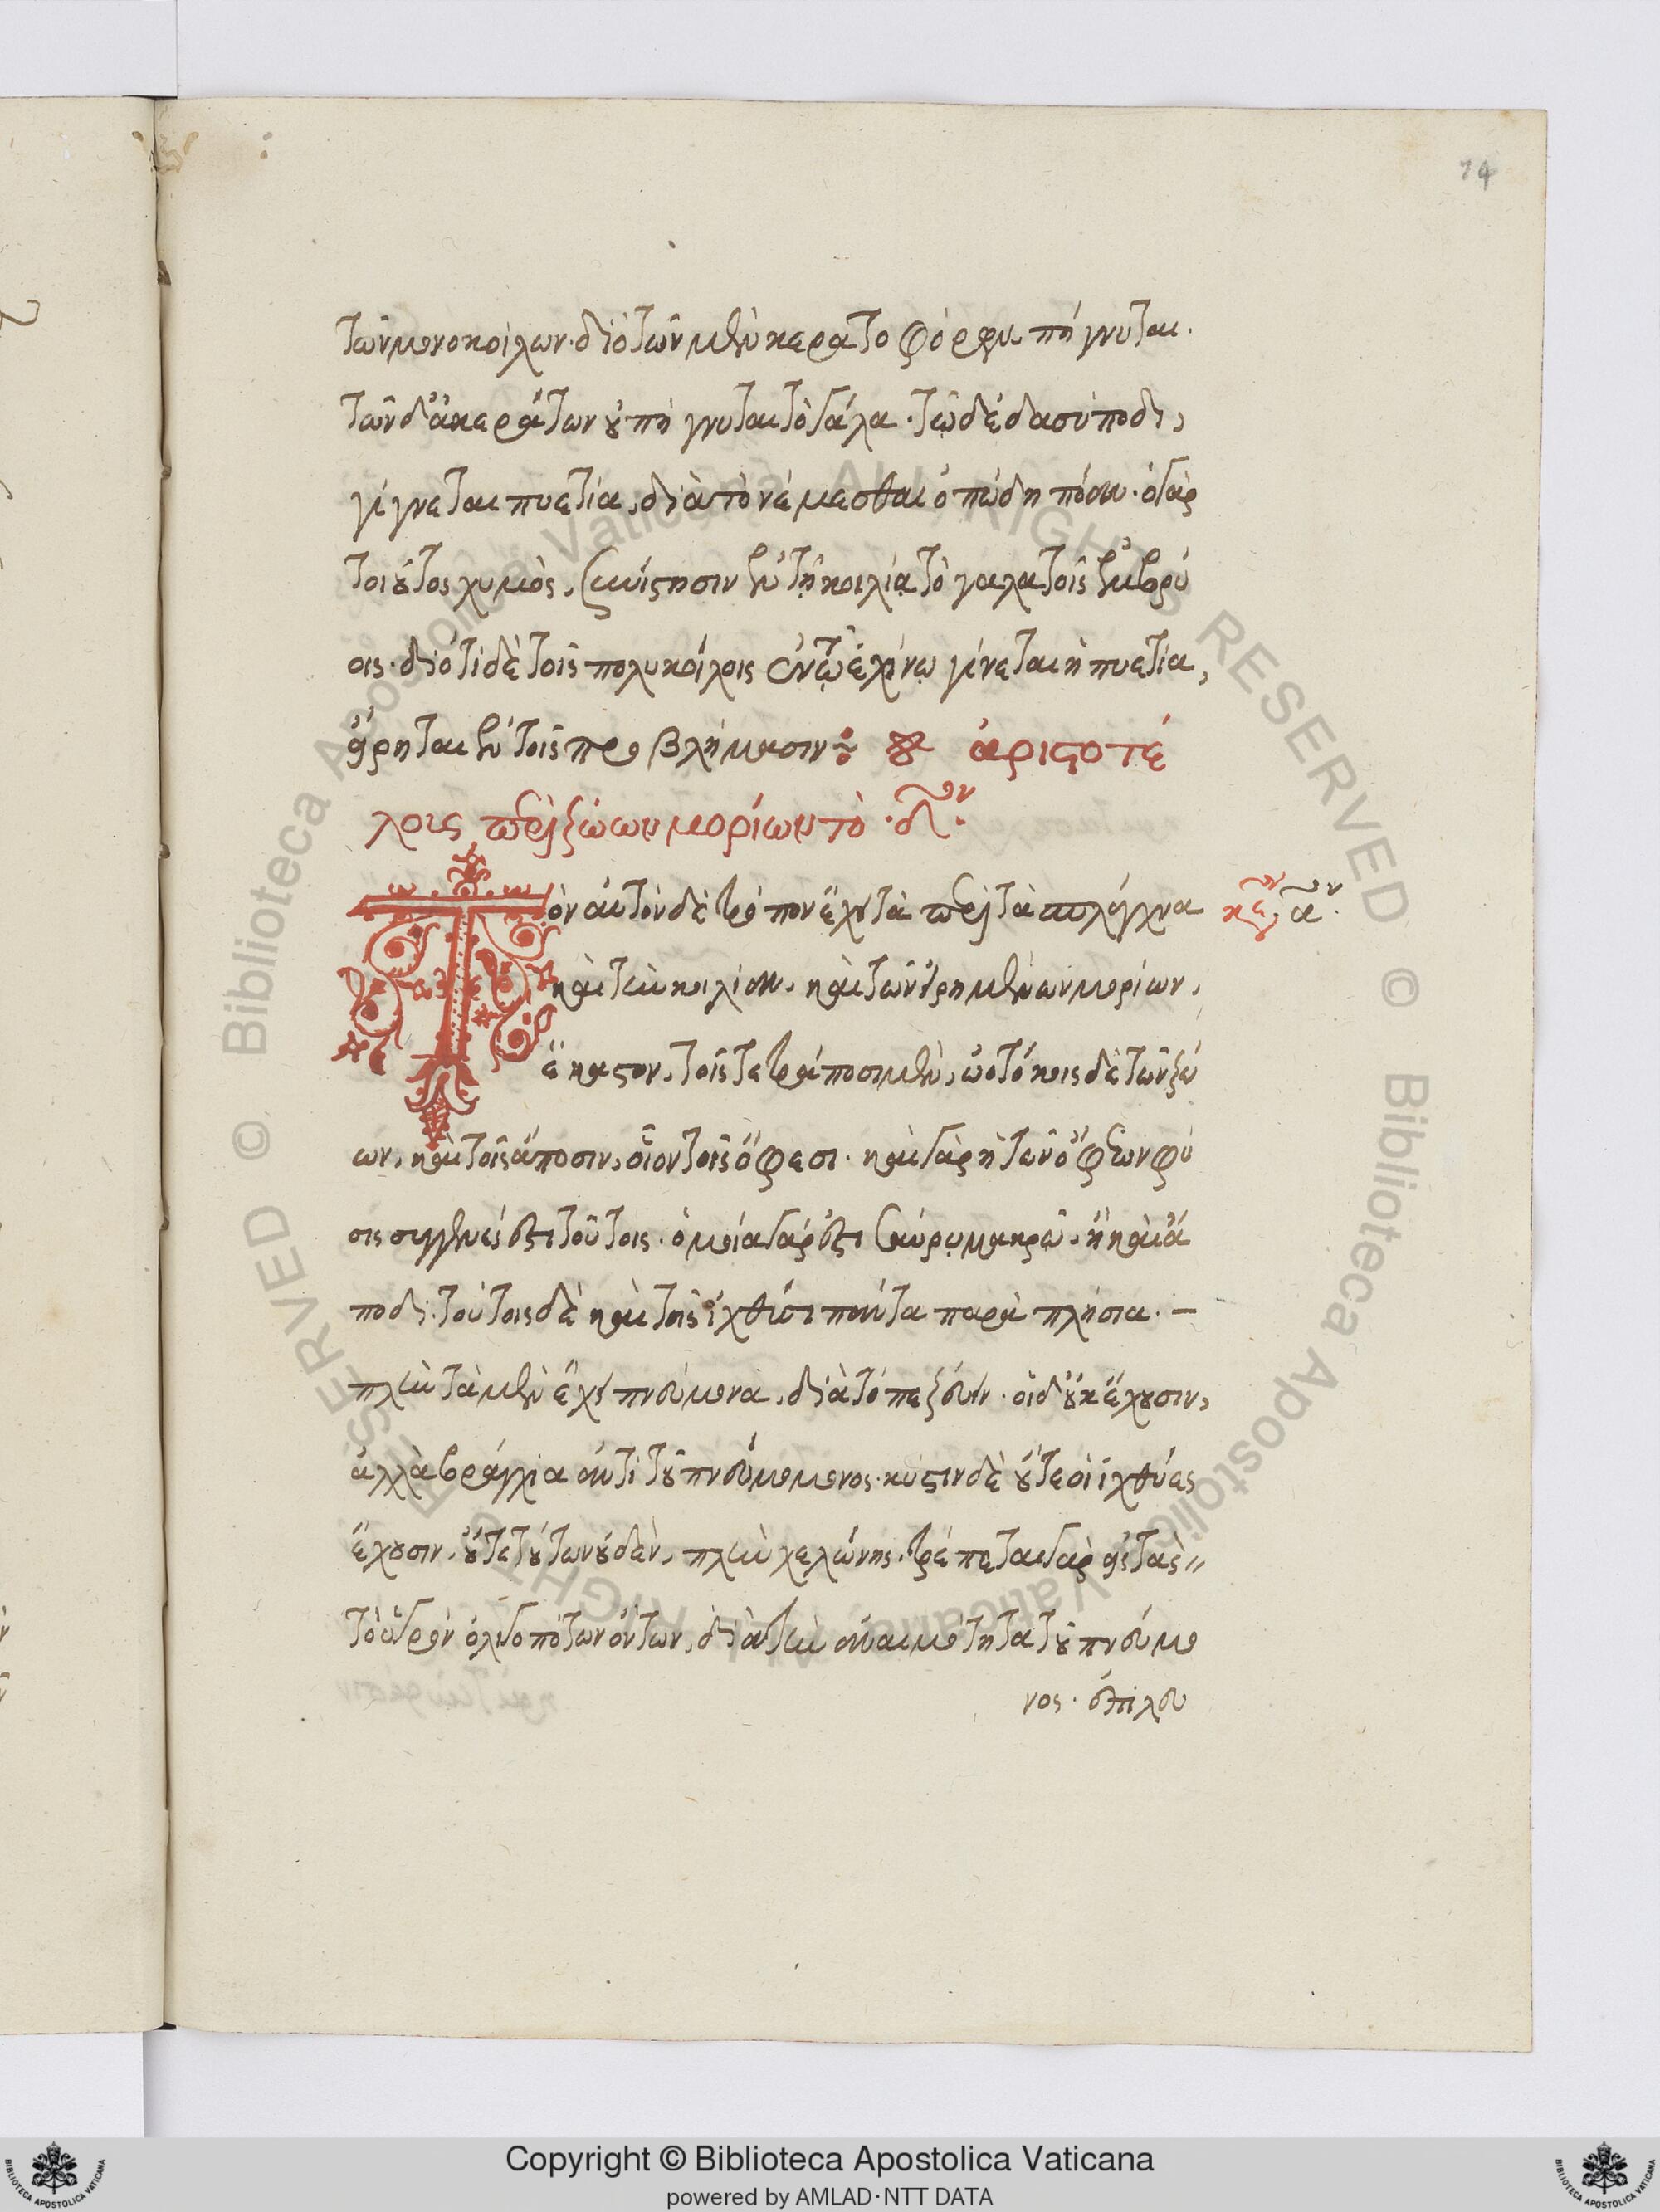 74
τῶν μονοκοίλων· διὸ τῶν μὲν κερατοφόρων πήγνυται·
τῶν δ' ἀκεράτων οὐ πήγνυται τὸ γάλα· τῷ δὲ δασύποδι,
γίγνεται πυετία, διὰ τὸ νέμεσθαι ὀπώδη πόαν· ὁ γὰρ
τοιοῦτος χυμὸς, συνίστησιν ἐν τῇ κοιλίᾳ τὸ γάλα τοῖς ἐμβρύ
οις· διότι δὲ τοῖς πολυκοίλοις ἐν τῷ ἐχίνῳ γίνεται ἡ πυετία,
εἴρηται ἐν τοῖς προβλήμασιν: ἀριστοτέ
λους περὶ ζώων μορίων τὸ δ^ον·
Τὸν αὐτὸν δὲ τρόπον ἔχει τὰ περὶ τὰ σπλάγχνα
κε^ον α^ον·
καὶ τὴν κοιλίαν, καὶ τῶν εἰρημένων μορίων,
ἕκαστον, τοῖς τετράποσι μὲν, ὠοτόκοις δὲ τῶν ζώ
ων, καὶ τοῖς ἄποσιν, οἷον τοῖς ὄφεσι· καὶ γὰρ ἡ τῶν ὄφεων φύ
σις συγγενές ἐστι τούτοις· ὁμοία γάρ ἐστι σαύρῳ μακρῷ, ἢ καὶ ἄ
ποδι· τούτοις δὲ καὶ τοῖς ἰχθύσι πάντα παραπλήσια· –
πλὴν τὰ μὲν ἔχει πνεύμονα, διὰ τὸ πεζεύειν· οἱ δ' οὐκ ἔχουσιν,
ἀλλὰ βράγχια ἀντὶ τοῦ πνεύμονος· κύστιν δὲ οὔτε οἱ ἰχθύες
ἔχουσιν, οὔτε τούτων οὐδὲν, πλὴν χελώνης· τρέπεται γὰρ εἰς τὰς
τὸ ὑγρὸν ὀλιγοπότων ὄντων, διὰ τὴν ἀναιμότητα τοῦ πνεύμο
νος·
Copyright © Biblioteca Apostolica Vaticana
powered by AMLAD·NTT DATA